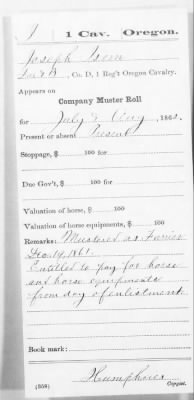 1 Cav. Oregon.
Joseph
, Co. D, 1 Reg't Oregon Cavalry.
Appears on
Company Muster Roll
for July & Aug, 186
Present or absent Present
Stoppage, $ 100 for
Due Gov't, $ 100 for
Valuation of horse, $ 100
Valuation of horse equipments, $ 100
Remarks: Mustered as Farrier
Dec. 19, 1861.
Entitled to pay for horse
and horse equipments
from day of enlistment.
Book mark:
Humphries
(358) Copyist.